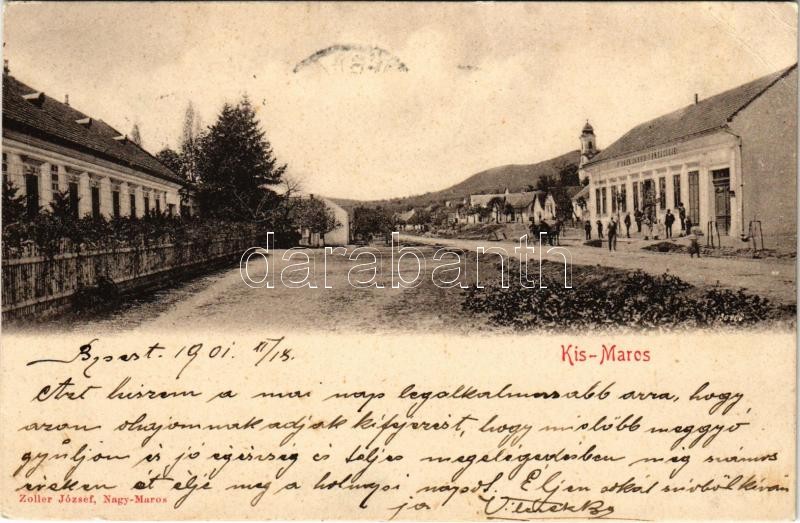 darabanth
Kis-Maros
Bpest. 1901. II/18.
Azt hiszem a mai nap legalkalmasabb arra, hogy
azon ohajomnak adjak kifejezést, hogy mielőbb meggyó
gyúljon és jó egészség és teljes megelégedésben még számos
éveken át élje meg a holnapi napot. Éljen sokat szivből kivan
ja
Zoller József, Nagy-Maros